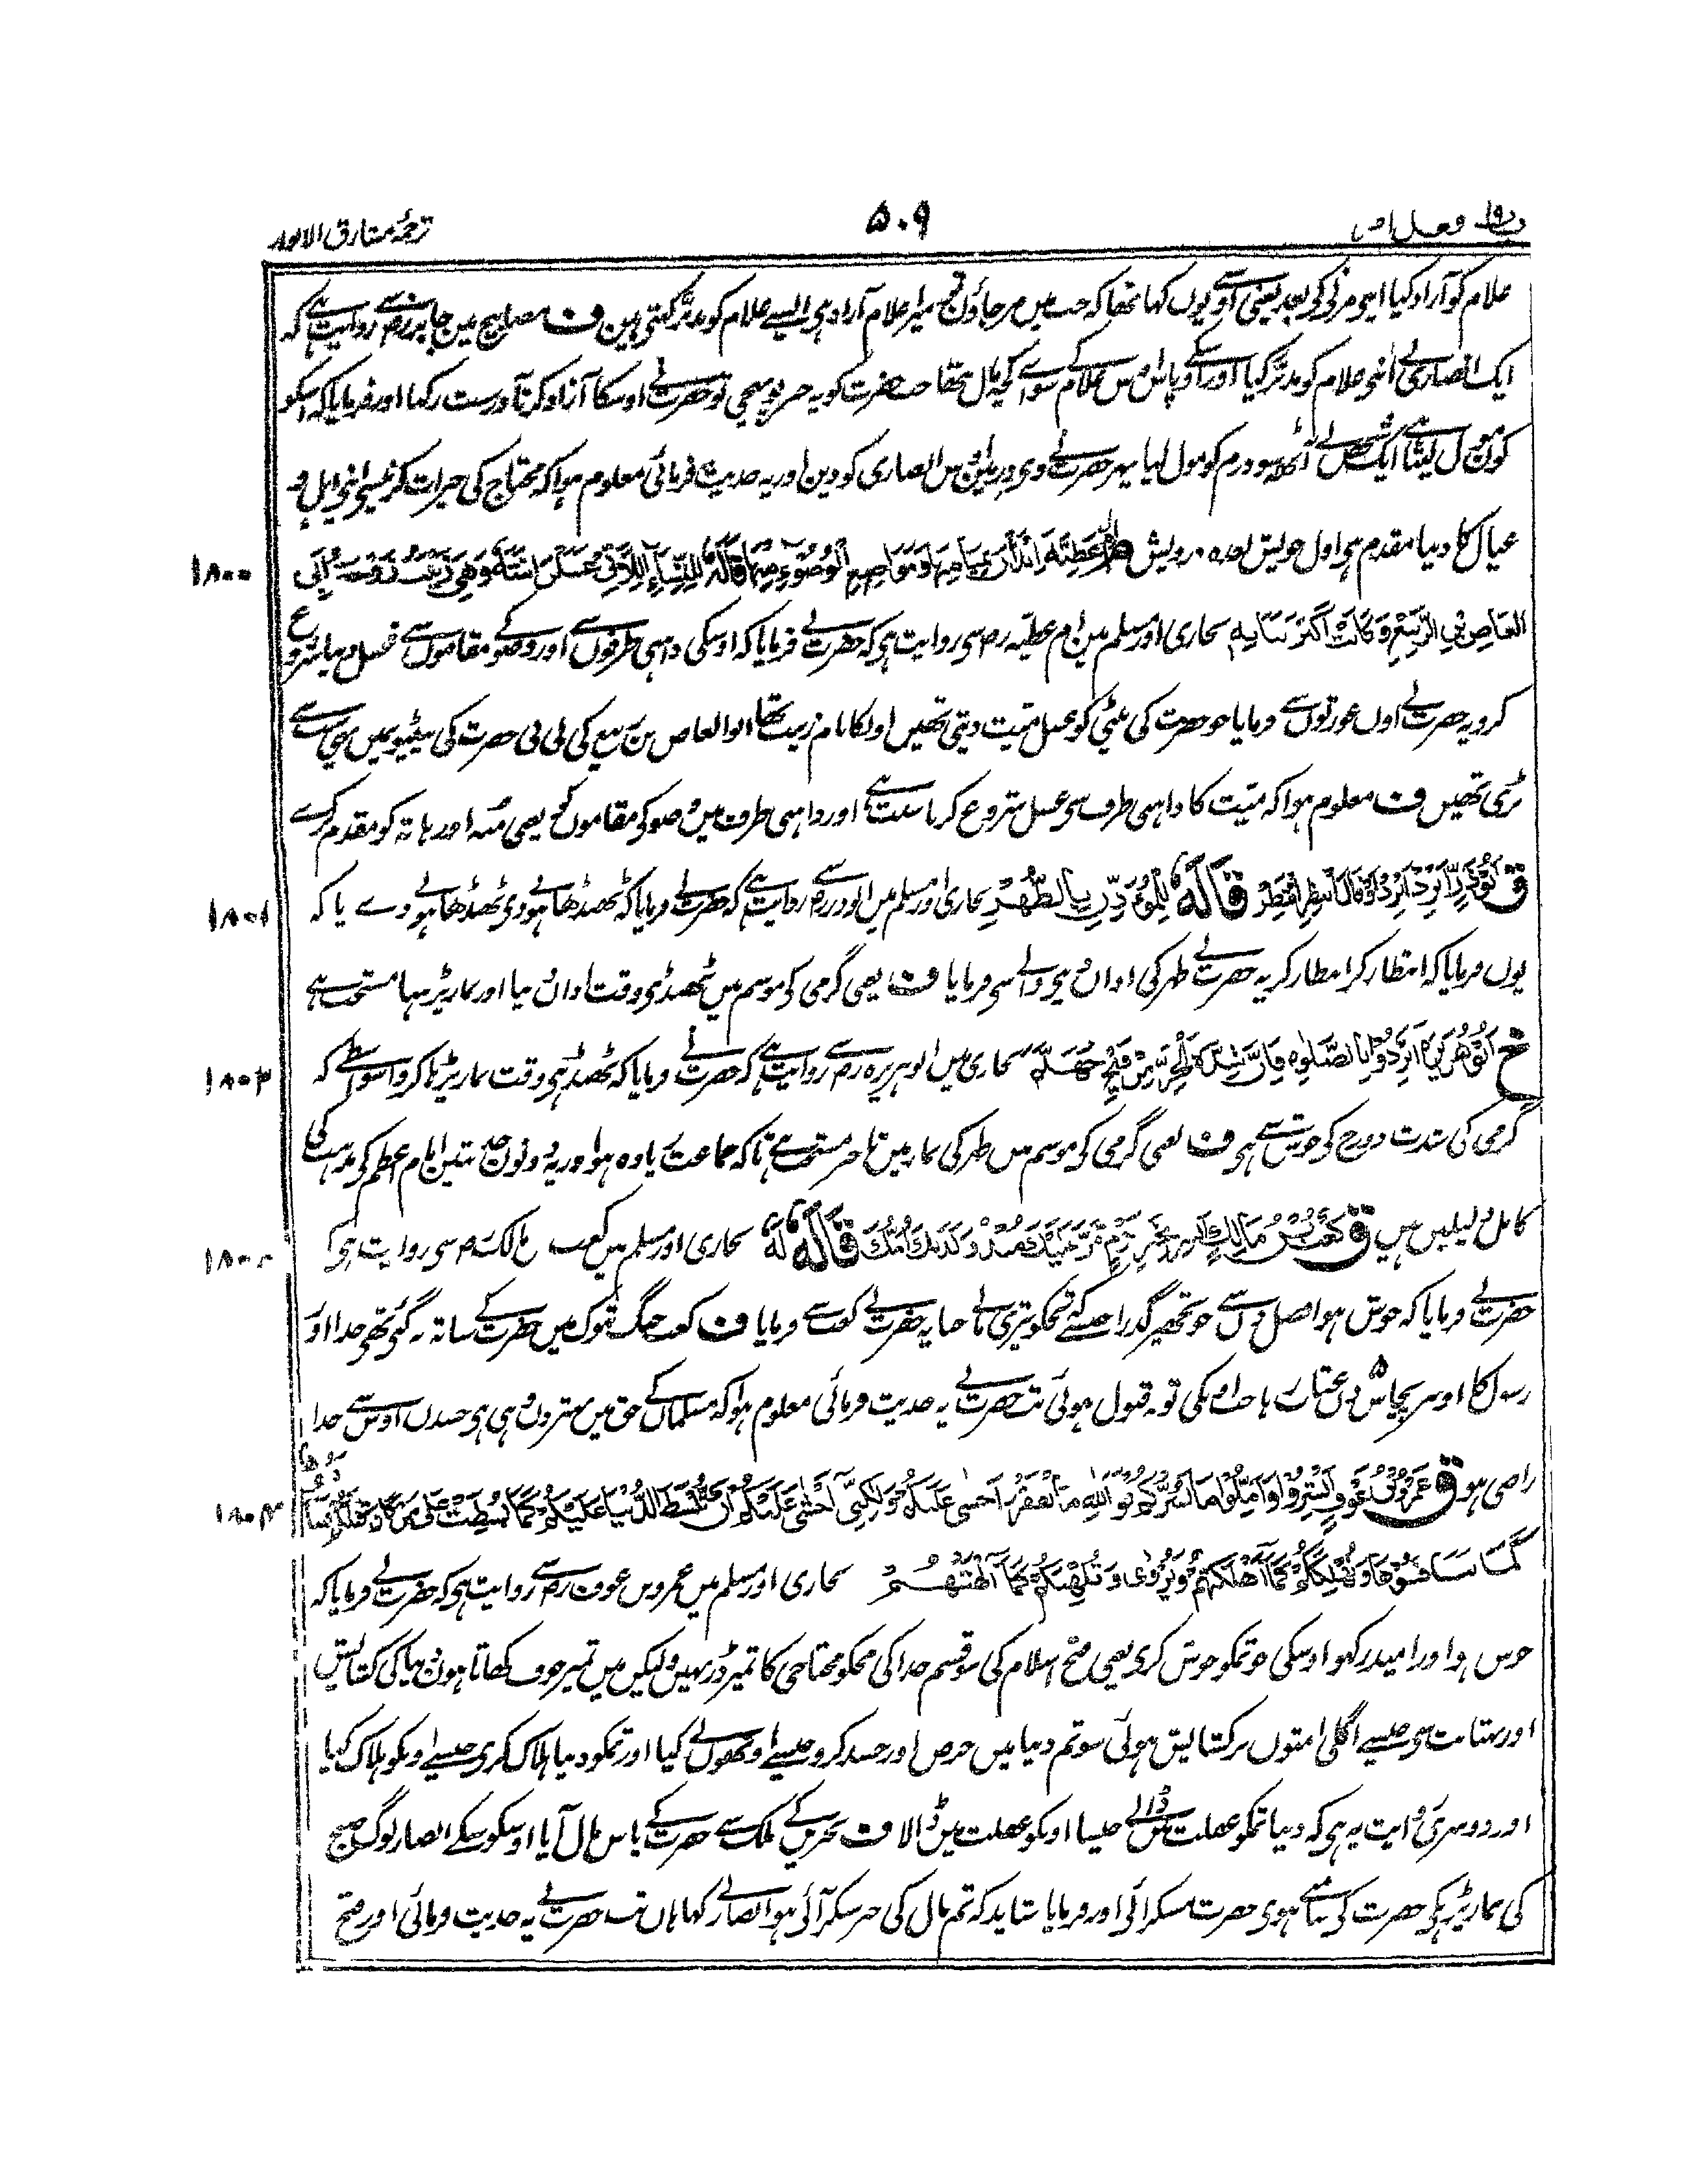 ترجمۂ مشارق الانوار ۵۰۹
غلام کو آزاد کیا اپنی مرنی کی بعد یعنی اوسنے یوں کہا تھا کہ جب میں مر جاؤں تو میرا غلام آزاد ہی ایسے غلام کو مدبّر کہتی ہین ف مصابیح مین جابر رض سے روایت ہے کہ
ایک انصاری نے اپنی غلام کو مدبّر کیا اور اوسکے پاس اس غلام کے سوائے کچھ مال نتھا جب حضرت کو یہ خبر پہونچی تو حضرت نے اوسکا آزاد کرنا درست رکھا اور فرمایا کہ اسکو
کون مول لیتا ہے ایک شخص نے آٹھ سو درم کو مول لیا پھر حضرت نے وی درم اوس انصاری کو دین اور یہ حدیث فرمائی معلوم ہوا کہ محتاج کی خیرات کرنیسے اپنی اہل و
عیال کا دینا مقدم ہی اول خویش بعدہ درویش ق ام عطیۃ ابدأن بمیامنها ومواضع الوضوء منها قاله للنساء اللاتی غسلن ابنته وهی زینب زوجة ابی ۱۸۰۰
العاص بن الربیع وکانت اکبر بناته بخاری اور مسلم مین ام عطیّہ رض سی روایت ہی کہ حضرت نے فرمایا کہ اوسکی داہنی طرفوں سے اور وضو کے مقاموں سے غسل دینا شروع
کرو یہ حضرت نے اون عورتوں سے فرمایا جو حضرت کی بیٹی کو غسل میّت دیتی تھیں اونکا نام زینب تھا ابو العاص بن ربیع کی بی بی حضرت کی بیٹیوں میں سبھی سے
بڑی تھیں ف معلوم ہوا کہ میّت کا داہنی طرف سی غسل شروع کرنا سنت ہے اور داہنی طرف میں وضو کی مقاموں کو یعنی منہ اور ہاتہ کو مقدم کرے
ق ابو ذر ابرد ابرد او قال انتظر انتظر قاله للمؤذن بالظهر بخاری اور مسلم میں ابو ذر رض سے روایت ہے کہ حضرت نے فرمایا کہ ٹھنڈھا ہونے دی ٹھنڈھا ہونے دے یا کہ ۱۸۰۱
یوں فرمایا کہ انتظار کر انتظار کر یہ حضرت نے ظہر کی اذان دینے والے سی فرمایا ف یعنی گرمی کی موسم میں ٹھنڈی وقت اذان دینا اور نماز پڑہنا مستحب ہے
خ ابو هریرة ابردوا بالصلوة فان شدة الحر من فیح جهنم بخاری میں ابو ہریرہ رض سے روایت ہے کہ حضرت نے فرمایا کہ ٹھنڈے ہی وقت نماز پڑہا کرو اسواسطے کہ ۱۸۰۲
گرمی کی شدت دوزخ کی جوش سے ہی ف یعنی گرمی کی موسم میں ظہر کی نماز میں تاخیر مستحب ہے تاکہ جماعت زیادہ ہو اور یہ دونوں حدیثیں امام اعظم کی مذہب کی
کامل دلیلیں ہیں ق کعب بن مالک ابشر بخیر یوم مر علیك منذ ولدتك امك قاله له بخاری اور مسلم میں کعب بن مالک رض سی روایت ہی کہ
حضرت نے فرمایا کہ خوش ہو افضل دن سے جو تجھپر گذرا جب سے تجکو تیری ماں نے جنا یہ حضرت نے کعب سے فرمایا ف کعب جنگ تبوک میں حضرت کے ساتہ نہ گئی تھی خدا اور
رسول کا اوسپر پچاس دن عتاب رہا جب اونکی توبہ قبول ہوئی تب حضرت نے یہ حدیث فرمائی معلوم ہوا کہ مسلمان کے حق میں بہتر دن وہی ہی جسدن اوس سے خدا
راضی ہو ق عمرو بن عوف ابشروا واملوا ما یسرکم فوالله ما الفقر اخشی علیکم ولکنی اخشی علیکم ان تبسط الدنیا علیکم کما بسطت علی من کان قبلکم فتنافسوها ۱۸۰۴
کما تنافسوها وتهلککم کما اهلکتهم ویروی وتلهیکم کما الهتهم بخاری اور مسلم میں عمرو بن عوف رض سے روایت ہی کہ حضرت نے فرمایا کہ
خوش ہو اور امید رکھو اوسکی جو تمکو خوش کری یعنی فتح اسلام کی سو قسم خدا کی مجکو محتاجی کا تمپر ڈر نہیں ولیکن میں تمپر خوف کھاتا ہوں دنیا کی کشایش
اور بہتایت سی جیسے اگلی امتوں پر کشایش ہوئی سو تم دنیا میں حرص اور حسد کرو جیسے اونھوں نے کیا اور تمکو دنیا ہلاک کری جیسے اونکو ہلاک کیا
اور دوسری روایت یہ ہی کہ دنیا تمکو غفلت میں ڈالے جیسا اونکو غفلت میں ڈالا ف بحرین کے ملک سے حضرت کے پاس مال آیا اوسکو سنکے انصار لوگ صبح
کی نماز پڑہکی حضرت کی سامنے ہوی حضرت مسکرائی اور فرمایا شاید کہ تم مال کی خبر سنکر آئی ہو انصار نے کہا ہاں تب حضرت نے یہ حدیث فرمائی اور فتح